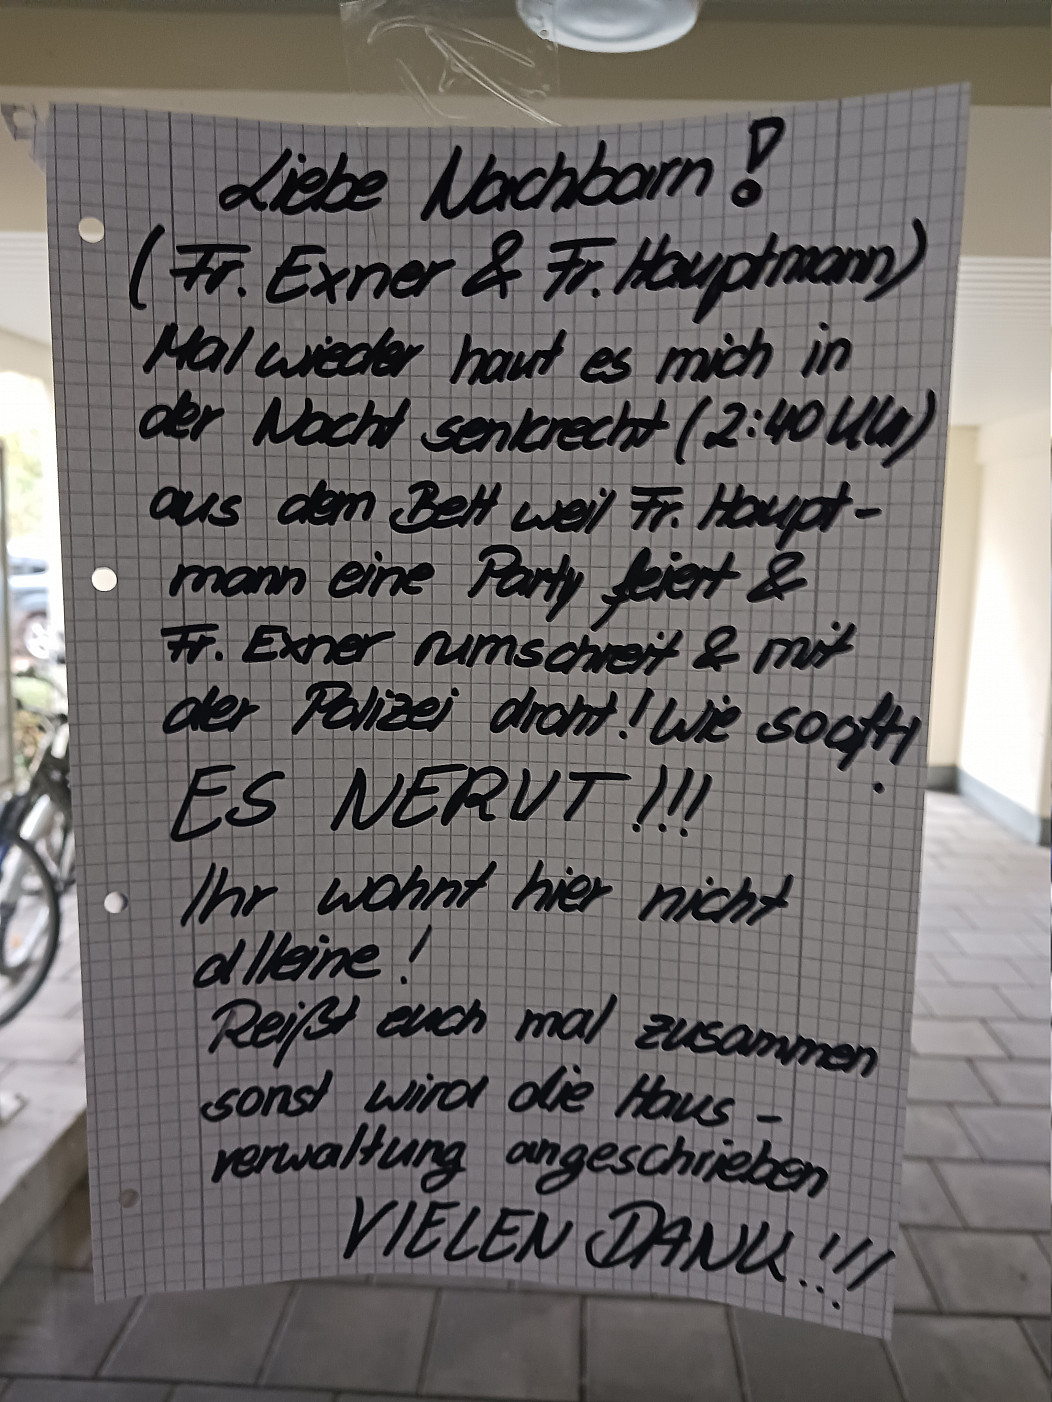 Liebe Nachbarn!
(Fr. Exner & Fr. Hauptmann)
Mal wieder haut es mich in
der Nacht senkrecht (2:40 Uhr)
aus dem Bett weil Fr. Haupt-
mann eine Party feiert &
Fr. Exner rumschreit & mit
der Polizei droht! Wie so oft!
ES NERVT!!!
Ihr wohnt hier nicht
alleine!
Reißt euch mal zusammen
sonst wird die Haus-
verwaltung angeschrieben
VIELEN DANK!!!